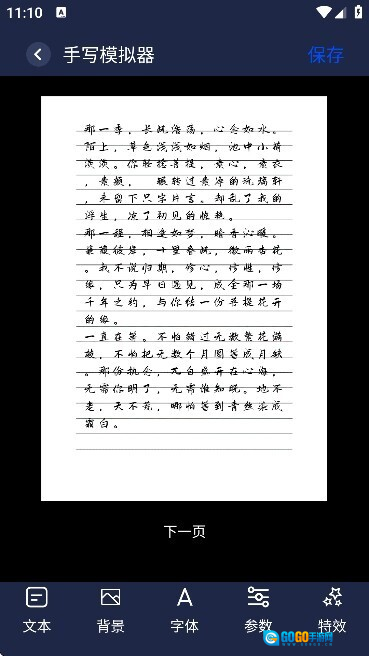 11:10
A
手写模拟器
保存
那一季，长风浩荡，心念如水。
陌上，草色浅浅如烟，池中小荷
淡淡。你轻捻菩提，素心，素衣
，素颜， 辗转过素净的流摘轩
，未留下只字片言。却乱了我的
浮生，凉了初见的惊艳。
那一程，相逢如梦，暗香沁暖。
蒹葭彼岸，十里春风，微雨杏花
。我不说归期，修心，修性，修
缘，只为早日遇见，成全那一场
千年之约，与你结一份菩提花开
的缘。
一直在等。不怕错过无数繁花满
枝，不怕把无数个月圆等成月缺
。那份执念，兀自盛开在心海，
无需你明了，无需谁知晓。地不
老，天不荒，哪怕等到青丝染成
霜白。
下一页
文本
背景
字体
参数
特效
GOGO手游网